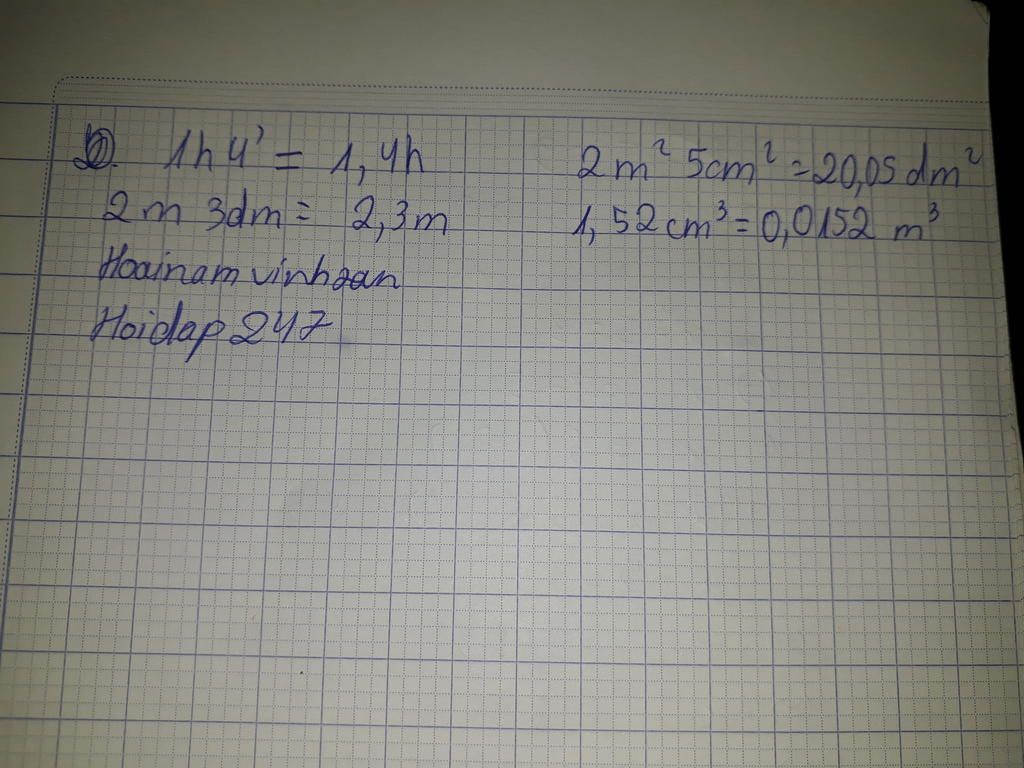 b). 1h4' = 1,4h
2m 3dm = 2,3m
Hoainam vinhoan
Hoidap 247
2m² 5cm² = 20,05 dm²
1,52 cm³ = 0,0152 m³